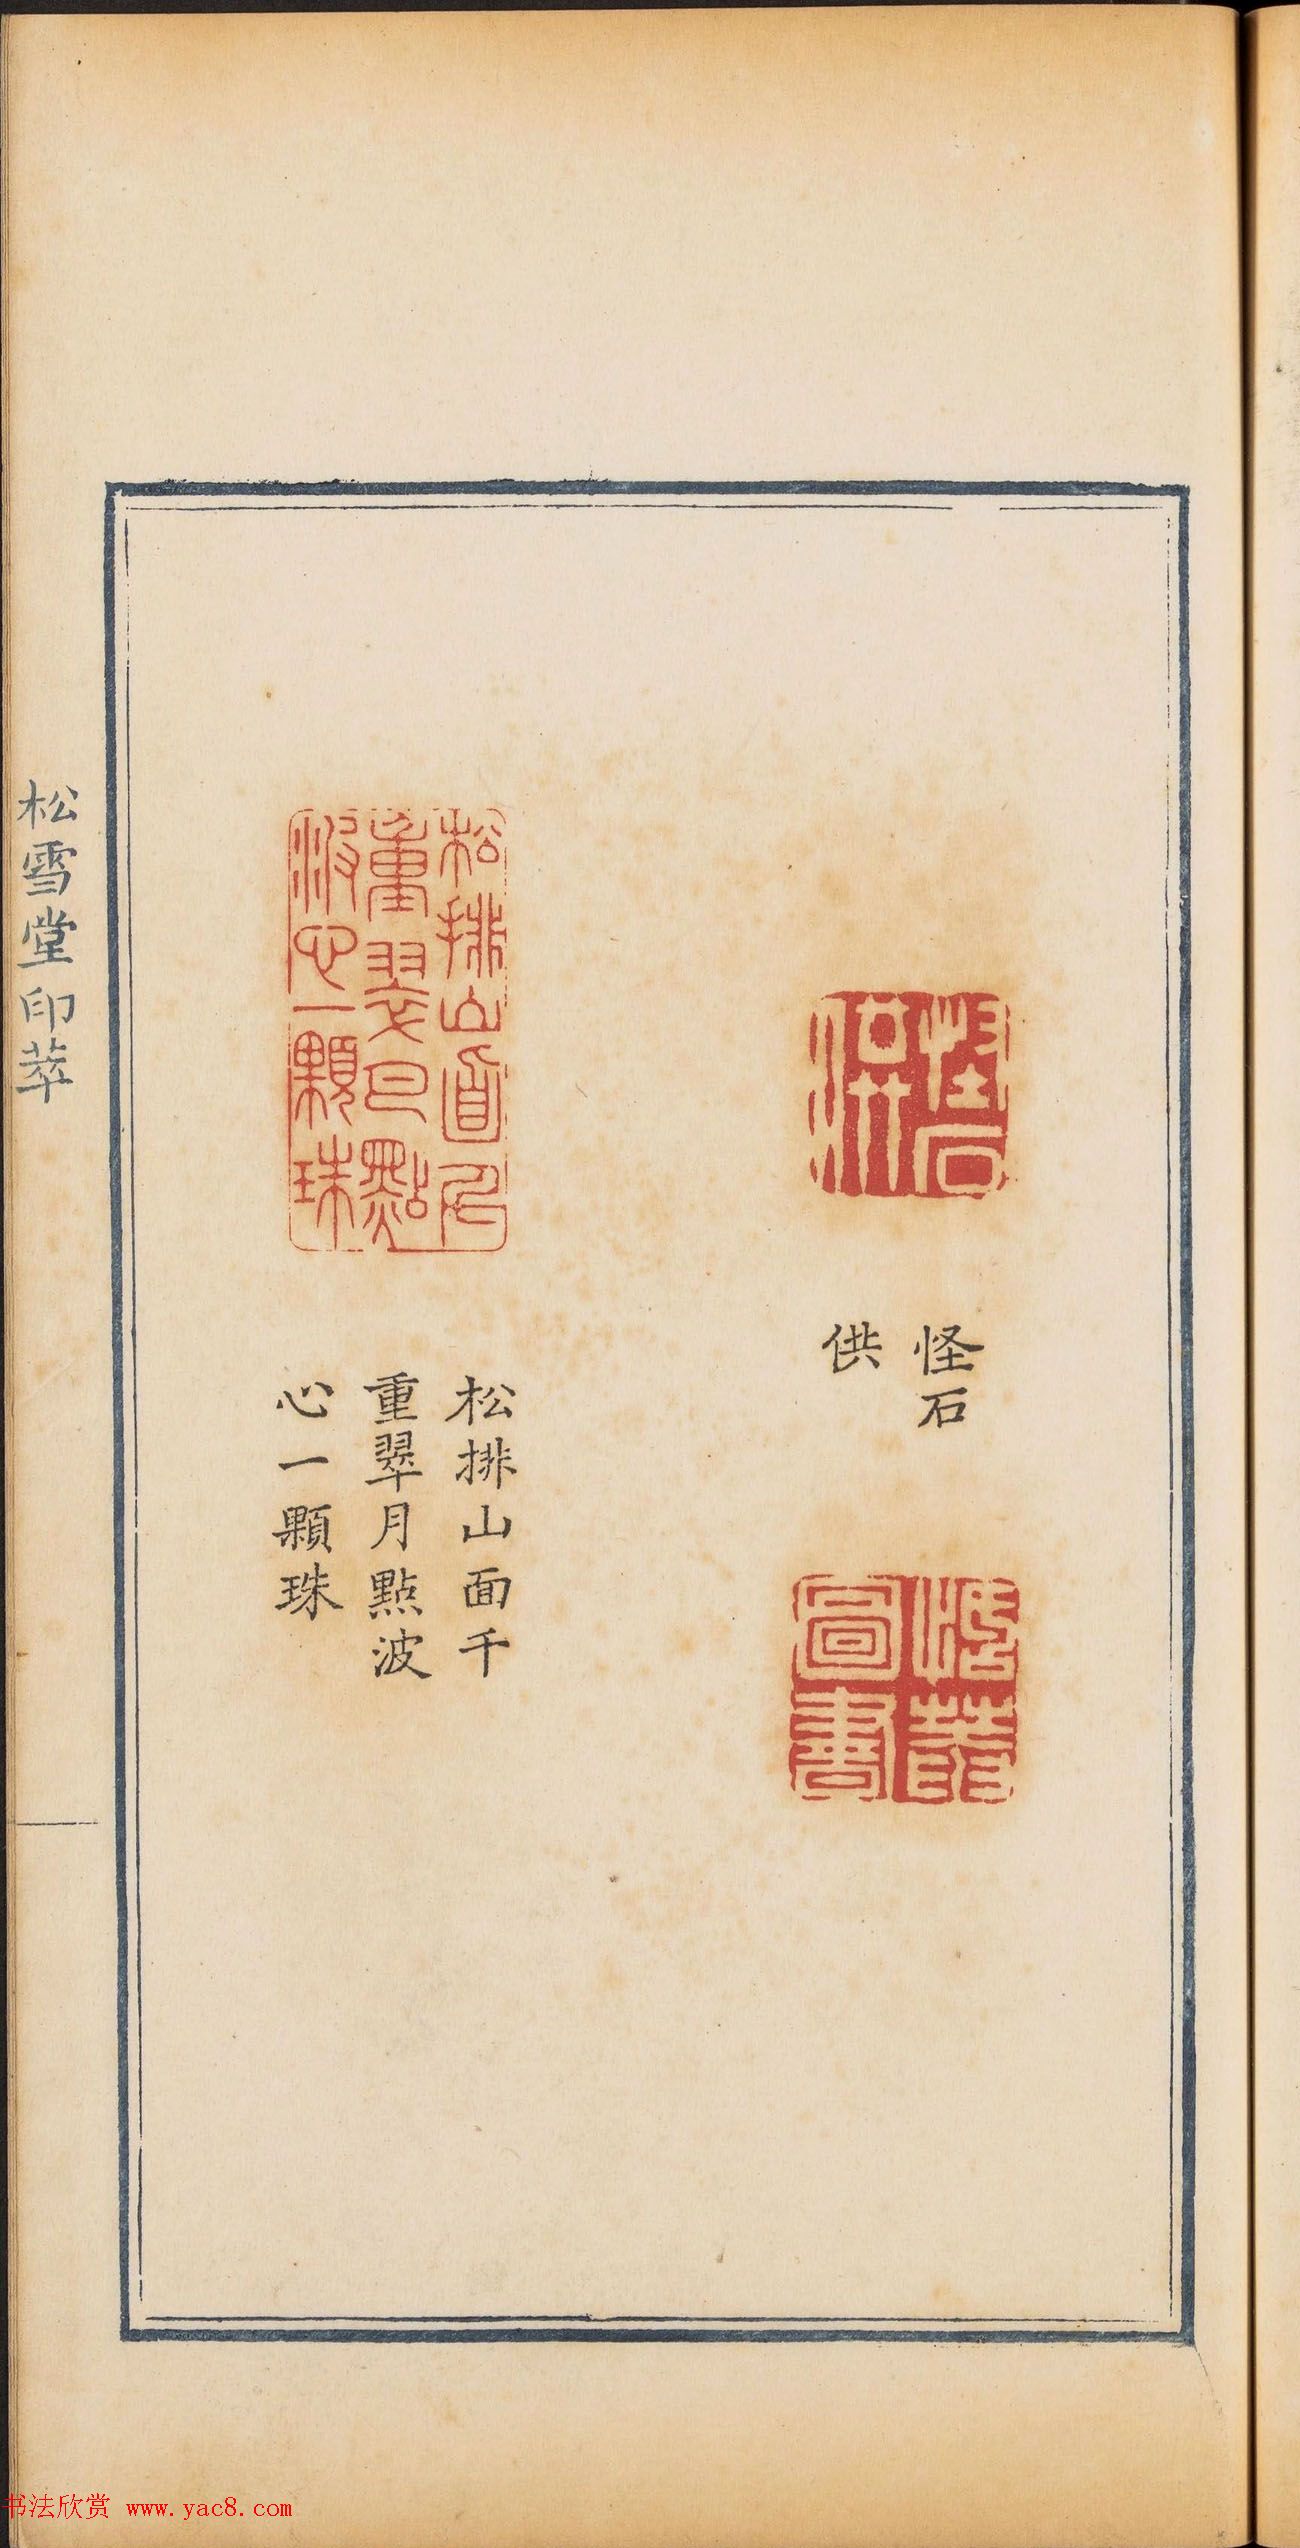 怪石
供
松排山面千
重翠月點波
心一顆珠
松排山面千
重翠月點
波心一顆珠
怪石
供
圖書
松雪堂印萃
书法欣赏 www.yac8.com